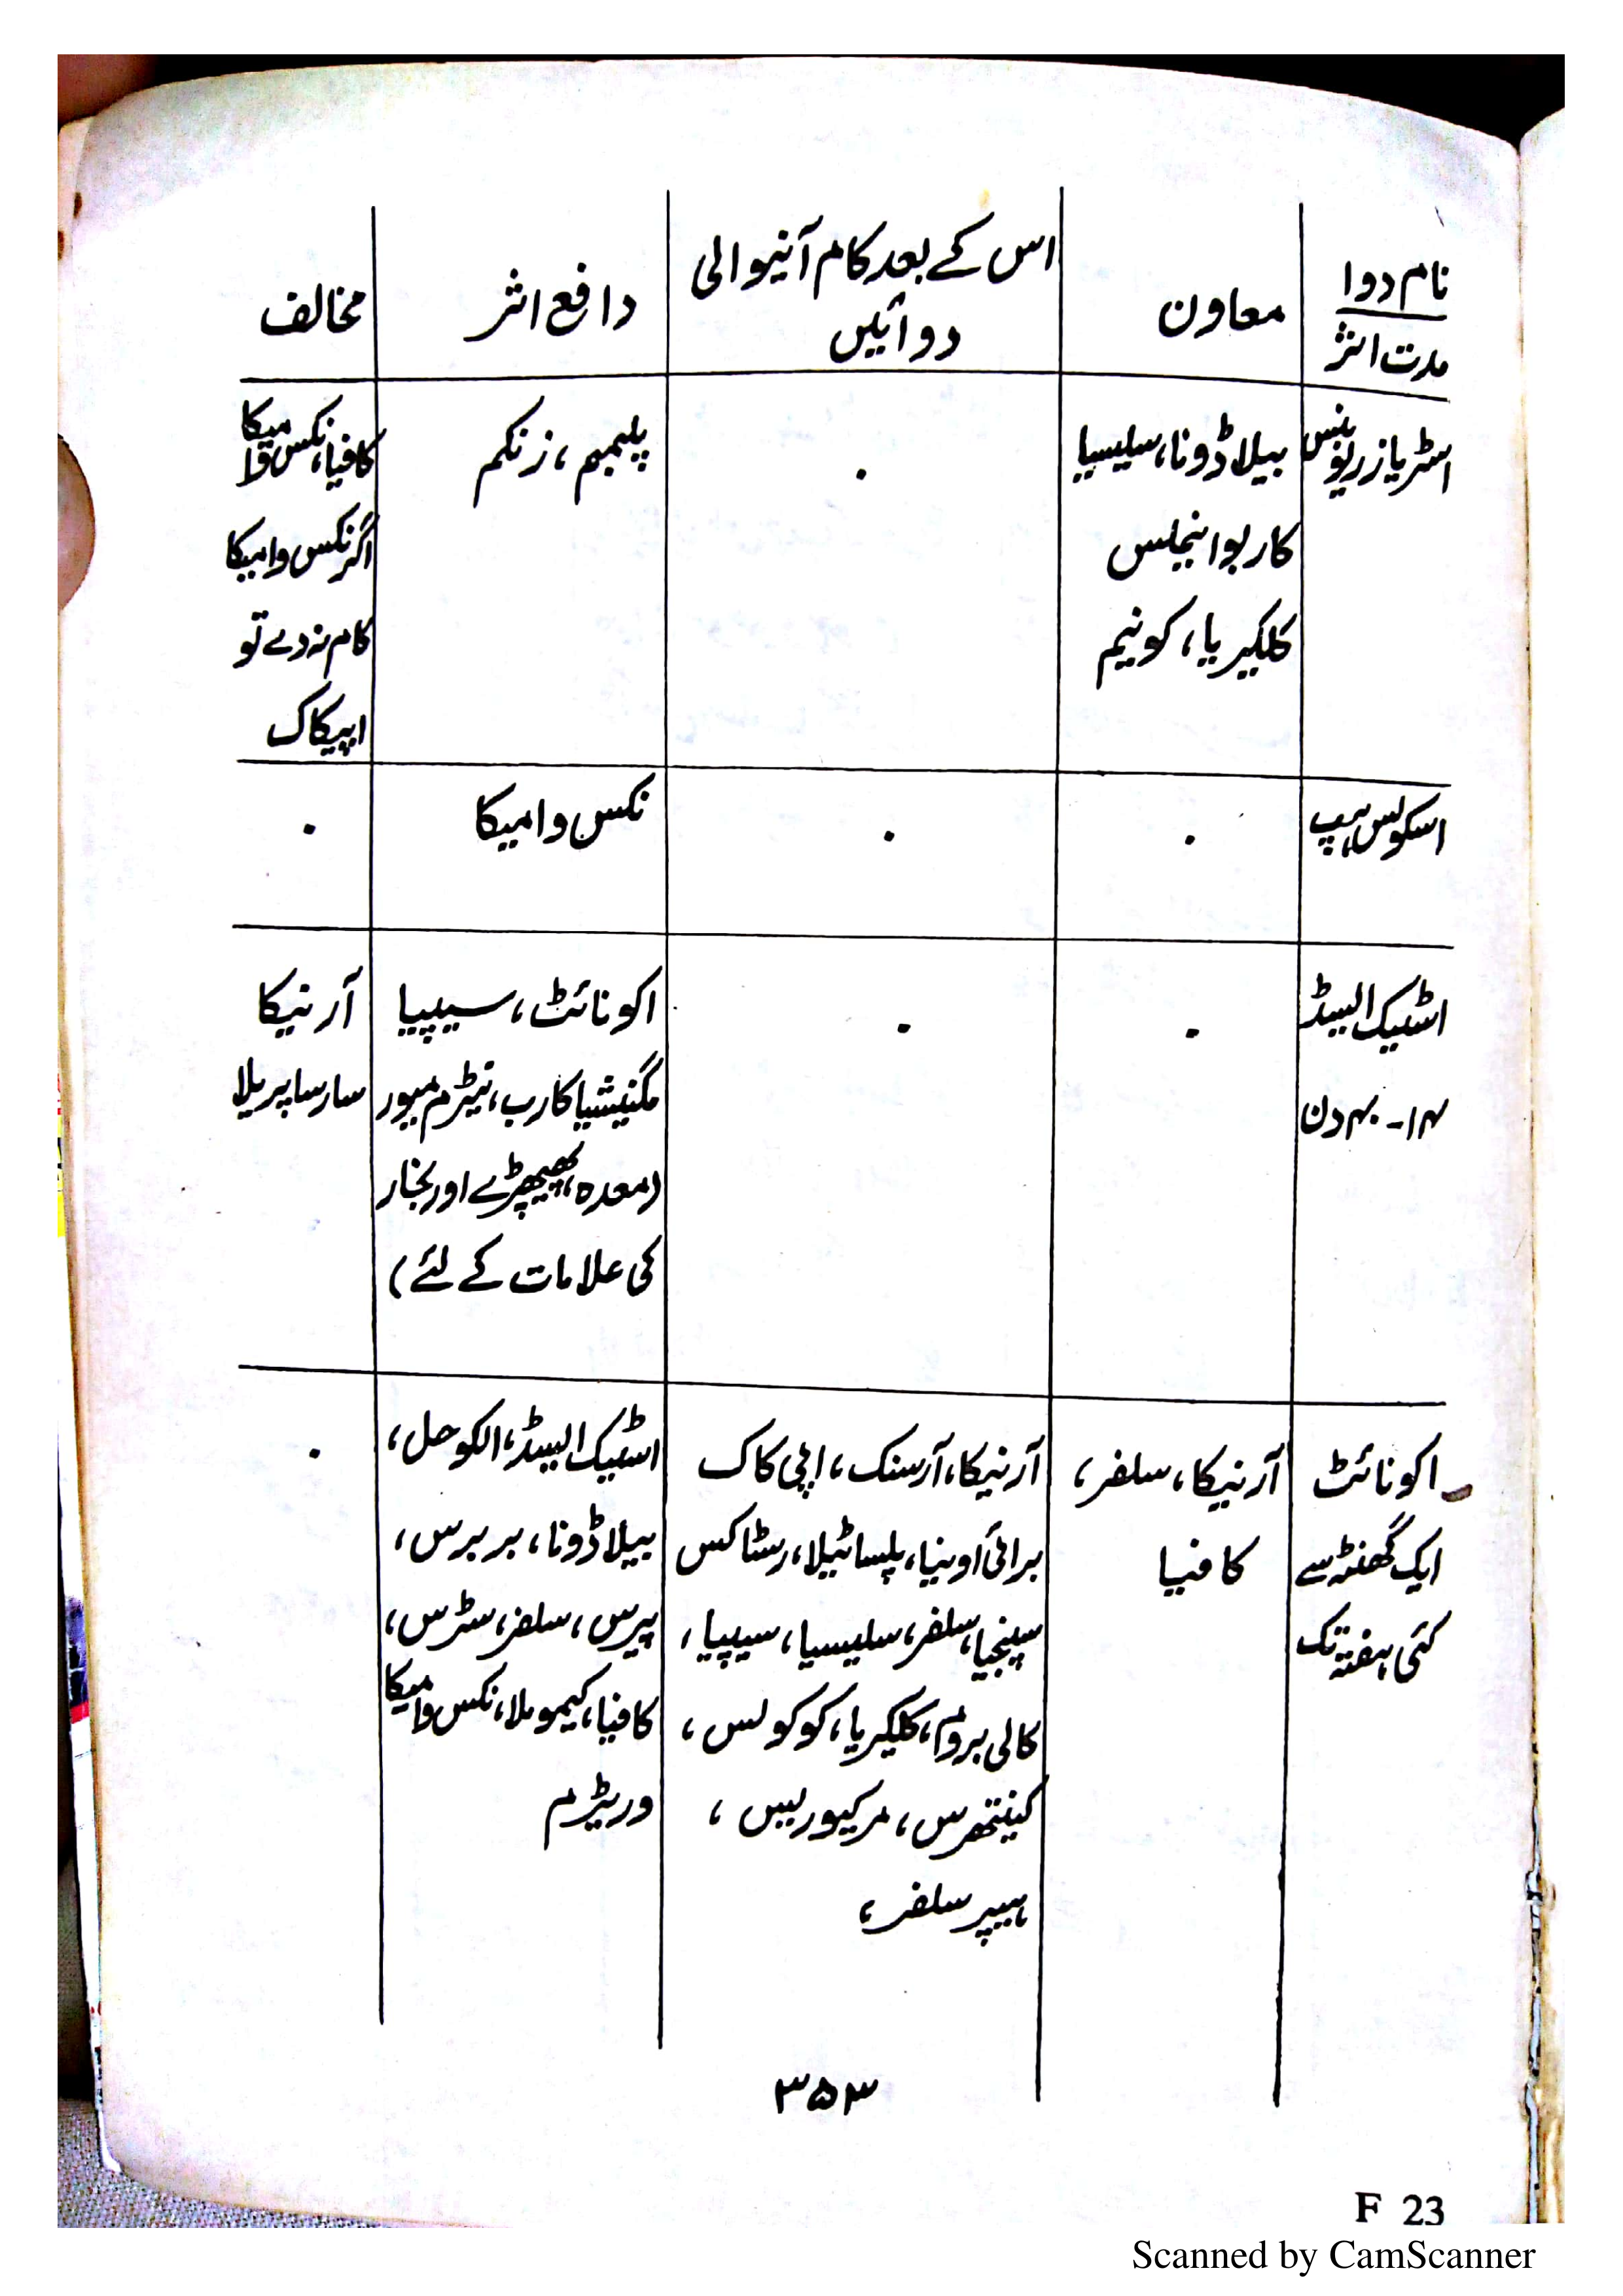 نام دوا
مدت اثر
معاون
اس کے بعد کام آنیوالی
دوائیں
دافع اثر
مخالف
اسٹریاز ریوبنس
بیلاڈونا، سلیسیا
کاربوانیملس
کلکیریا، کونیم
۰
پلمبم، زنکم
کافیا، نکس وامیکا
اگر نکس وامیکا
کام نہ دے تو
اپیکاک
اسکولس ہپ
۰
۰
نکس وامیکا
۰
اسٹیک ایسڈ
۱۴-۴۰ دن
۰
۰
اکونائٹ، سیپیا
مگنیشیا کارب، نیٹرم میور
(معدہ، پھیپھڑے اور بخار
کی علامات کے لئے)
آرنیکا
سارساپریلا
اکونائٹ
ایک گھنٹہ سے
کئی ہفتہ تک
آرنیکا، سلفر،
کافیا
آرنیکا، آرسنک، اپی کاک
برائی اونیا، پلساٹیلا، رسٹاکس
سپنجیا، سلفر، سلیسیا، سیپیا،
کالی بروم، کلکیریا، کوکولس،
کینتھرس، مرکیوریس،
ہیپر سلفر،
اسٹیک ایسڈ، الکوحل،
بیلاڈونا، بربرس،
پیرس، سلفر، سٹرس،
کافیا، کیموملا، نکس وامیکا
وریٹرم
۰
۳۵۳
F 23
Scanned by CamScanner